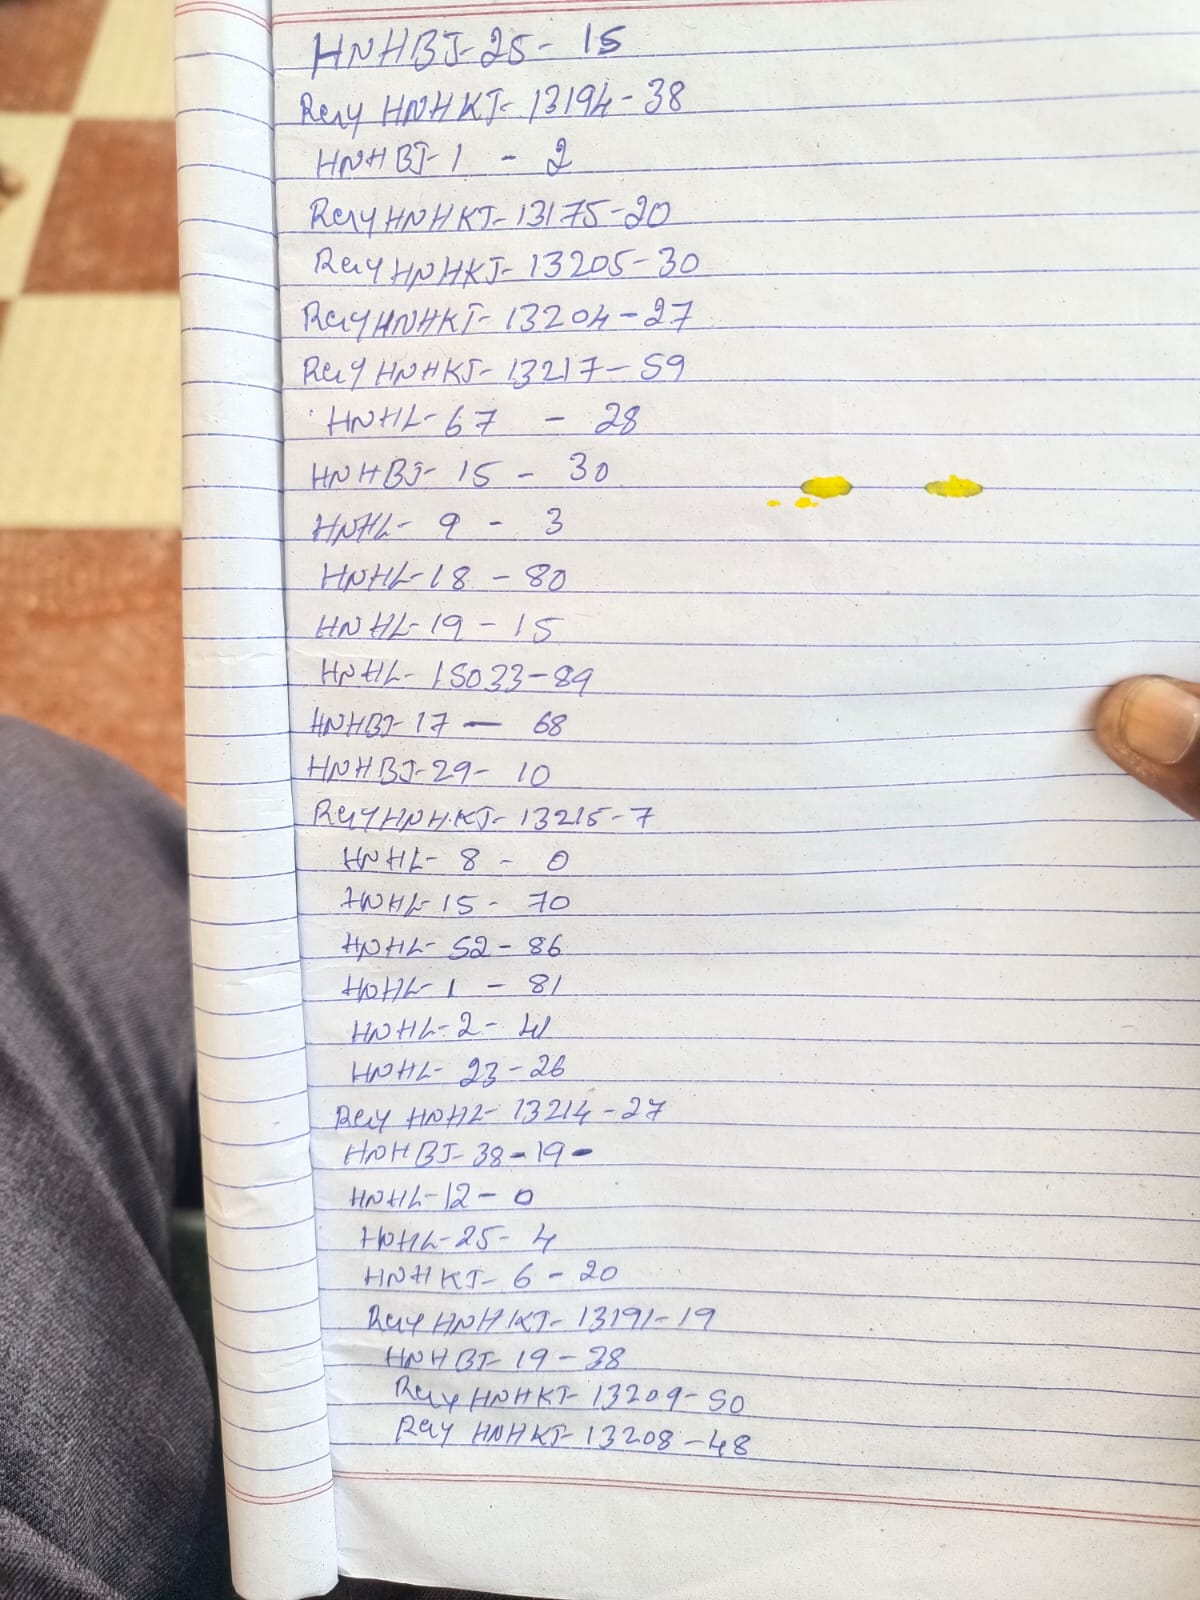 HNHBJ-25-15
Ray HNHKJ-13194-38
HNHBJ-1 - 2
Ray HNHKJ-13175-20
Ray HNHKJ-13205-30
Ray HNHKJ-13204-27
Ray HNHKJ-13217-59
HNHL-67 - 28
HNHBJ-15-30
HNHL-9-3
HNHL-18-80
HNHL-19-15
HNHL-15033-89
HNHBJ-17-68
HNHBJ-29-10
Ray HNHKJ-13215-7
HNHL-8-0
HNHL-15-70
HNHL-52-86
HNHL-1-81
HNHL-2-41
HNHL-23-26
Ray HNHL-13214-27
HNHBJ-38-19-
HNHL-12-0
HNHL-25-4
HNHKJ-6-20
Ray HNHKJ-13191-19
HNHBJ-19-38
Ray HNHKJ-13209-50
Ray HNHKJ-13208-48